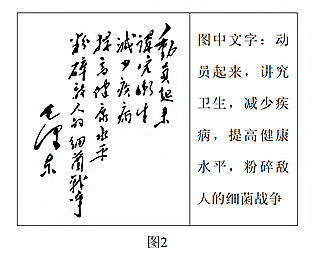 動員起来
講究衛生
減少疾病
提高健康水平
粉碎敌人的细菌戰争
毛澤东
图中文字：动
员起来，讲究
卫生，减少疾
病，提高健康
水平，粉碎敌
人的细菌战争
图2